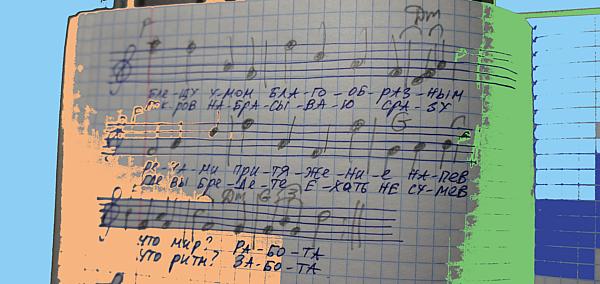 Dm
БЛЕ-ЩУ У-МОМ БЛА-ГО-ОБ-РАЗ-НЫМ
ПОК-РОВ НА-БРА-СЫ-ВА-Ю СРА-ЗУ
G C
РЕ-ЧА-МИ ПРИ-ТЯ-ЖЕ-НИ-Е НА-ПЕВ
ГДЕ ВЫ БРЕ-ДЕ-ТЕ Е-ХАТЬ НЕ СУ-МЕВ
Dm G
ЧТО МИР? РА-БО-ТА
ЧТО РИТМ? ЗА-БО-ТА